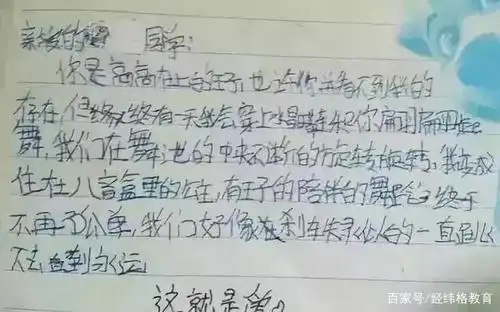 亲爱的 同学:
你是高高在上的王子,也许你并看不到我的
存在,但终有一天我会穿上水晶鞋和你翩翩起
舞,我们在舞池的中央不断的旋转旋转,我变成
住在八音盒里的公主,有王子的陪伴的舞蹈终于
不再孤单,我们好像刹车失灵似的一直
到永远
这就是爱。
百家号/经纬格教育